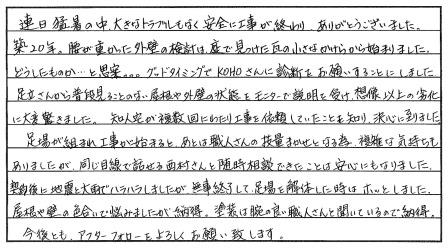 連日猛暑の中、大きなトラブルもなく安全に工事が終わり、ありがとうございました。
築20年。腰が重かった外壁の検討は、庭で見つけた瓦の小さなかけらから始まりました。
どうしたものか…と思案。。。グッドタイミングでKOHOさんに診断をお願いすることにしました。
足立さんから普段見ることのない屋根や外壁の状態をモニターで説明を受け、想像以上の劣化
に大変驚きました。知人宅が複数回にわたり工事を依頼していたことを知り、決心に至りました。
足場が組まれ工事が始まると、あとは職人さんの技量まかせとなる為、複雑な気持ちも
ありましたが、同じ目線で話せる西村さんと随時相談できたことは安心にもなりました。
契約後に地震と大雨でハラハラしましたが、無事終了して足場を解体した時はホッとしました。
屋根や壁の色合いで悩みましたが納得。塗装は腕の良い職人さんと聞いているので納得。
今後とも、アフターフォローをよろしくお願い致します。